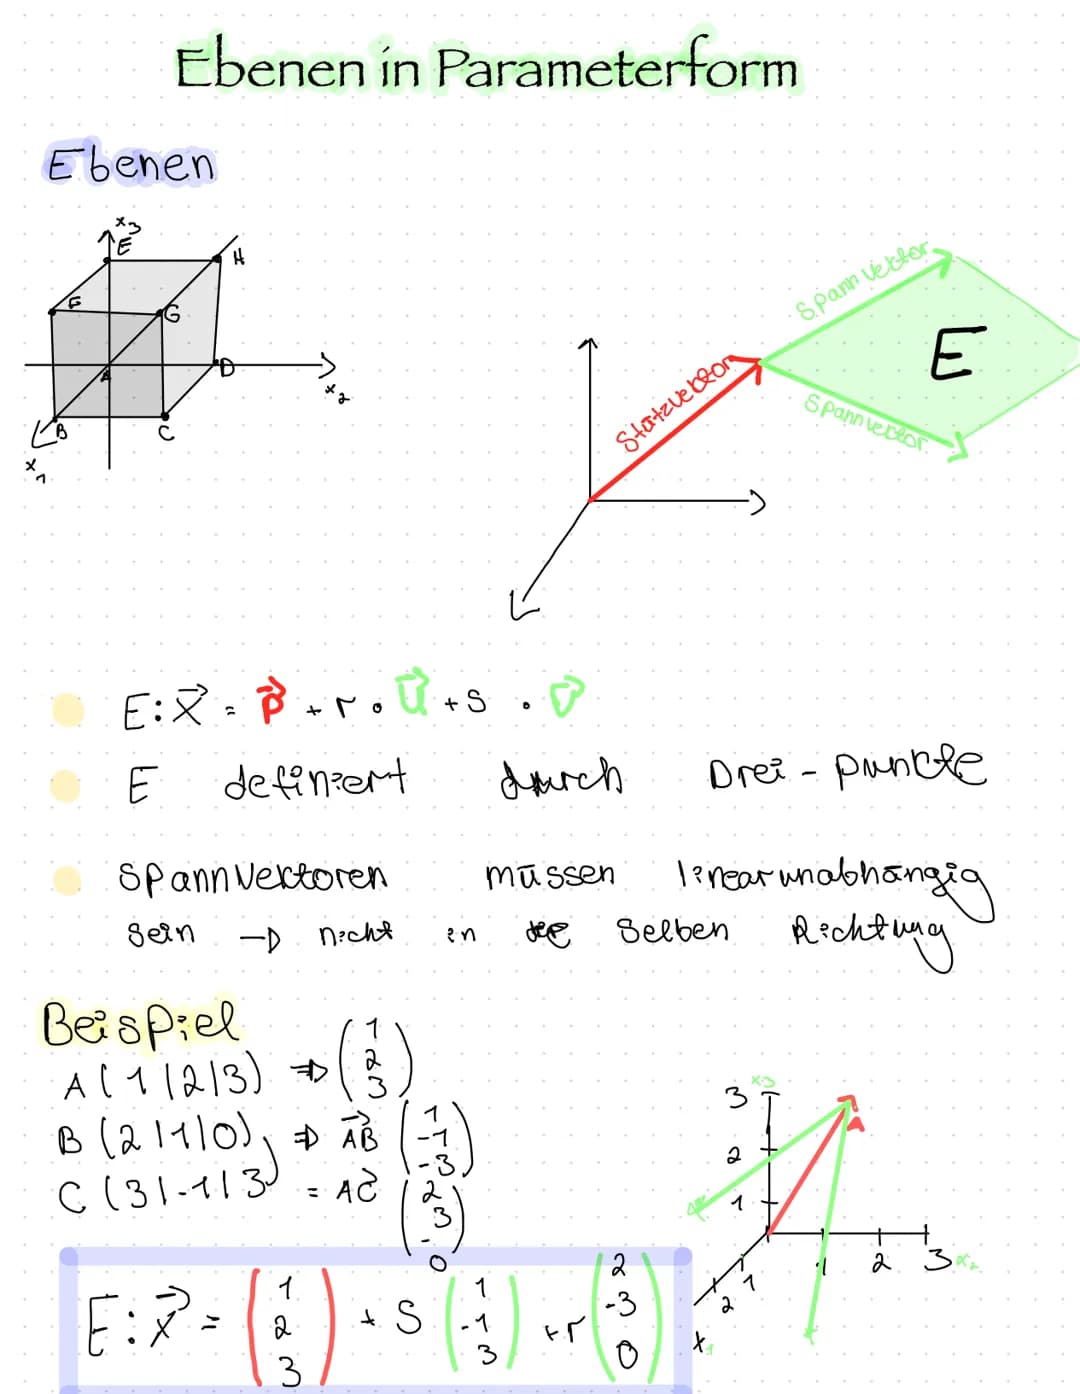 Ebenen in Parameterform
Ebenen
x3
E
H
F
G
A
D
x2
B
C
x1
Spannvektor
E
Stützvektor
Spannvektor
E: x⃗ = p⃗ + r · u⃗ + s · v⃗
E definiert durch Drei - puncte
Spannvektoren müssen linear unabhängig
sein → nicht in der selben Richtung
Beispiel
A(1|2|3) ⇒ (1 2 3)
B(2|1|0) ⇒ AB⃗ (1 -1 -3)
C(3|-1|3) = AC⃗ (2 -3 0)
E: x⃗ = (1 2 3) + s (1 -1 3) + r (2 -3 0)
3 x3
A
2
1
1 2 3 x2
1
2
x1